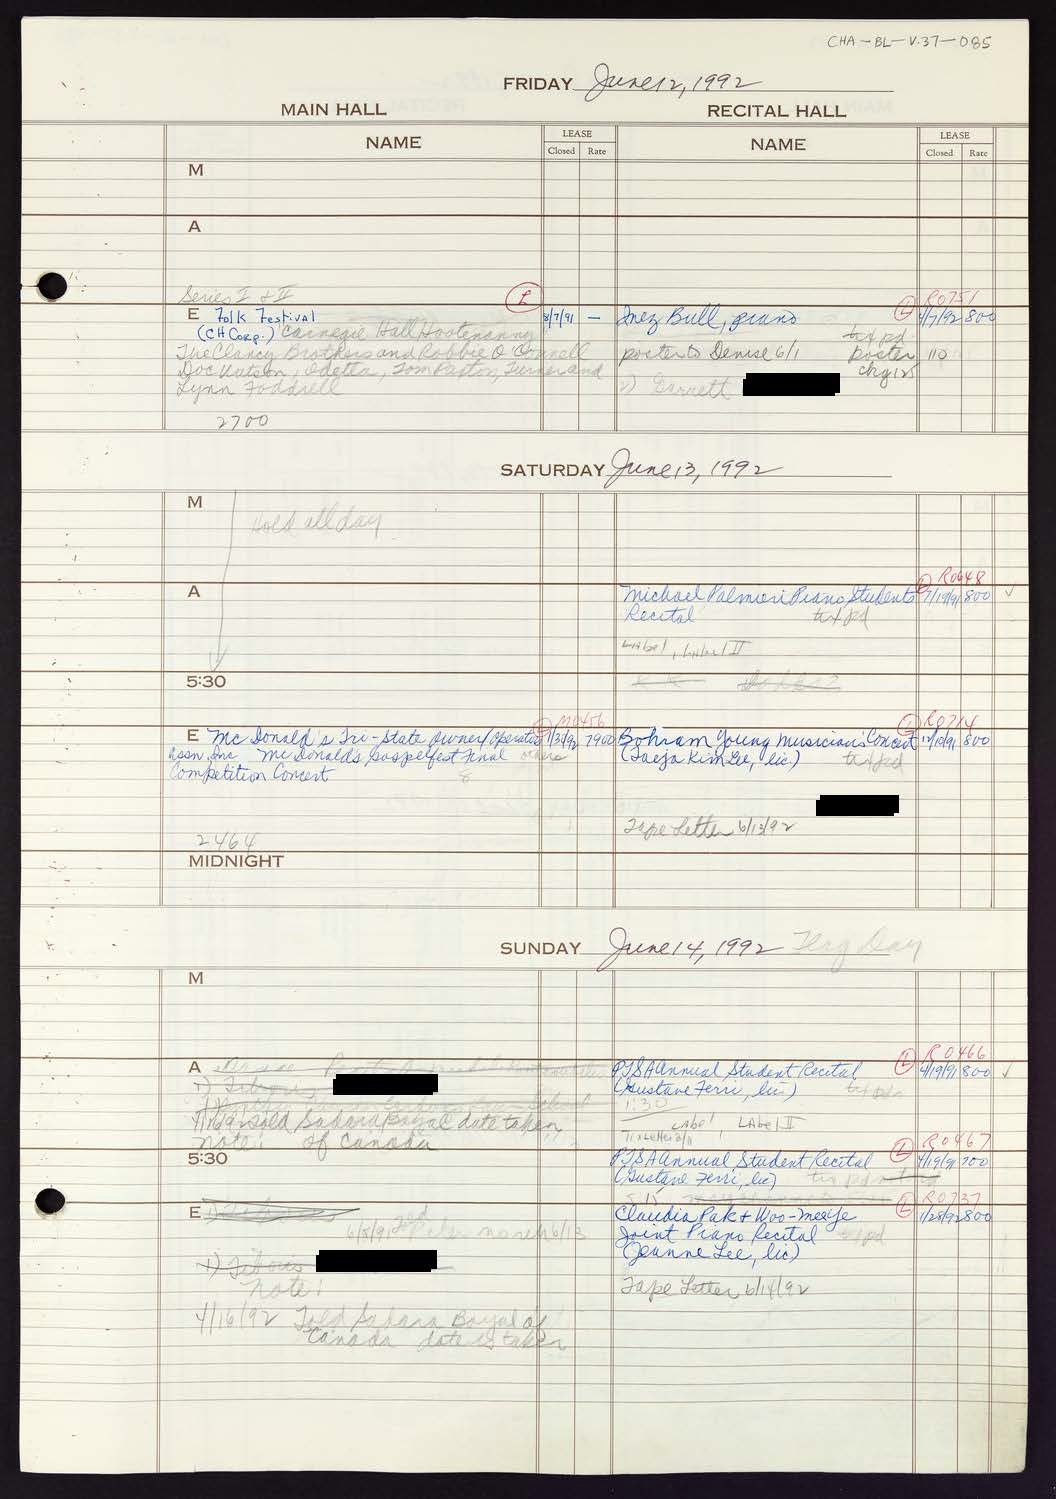 CHA-BL-V.37-085
FRIDAY June 12, 1992
MAIN HALL
RECITAL HALL
NAME
LEASE
Closed Rate
NAME
LEASE
Closed Rate
M
A
Series I & II
L
E Folk Festival 8/7/91 —
(CH Corp.) Carnegie Hall Hootenanny
The Clancy Brothers and Robbie O'Connell
Doc Watson, Odetta, Tom Paxton, Turner and
Lynn Foddrell
2700
R0751
L
Inez Bull, piano 4/7/92 800
txt pd
poster to Denise 6/1 poster 110
chg 125
2) Garrett
SATURDAY June 13, 1992
M
Hold all day
A
R0648
L
Michael Palmieri Piano Students 7/19/91 800
Recital txt pd
Label, Label II
5:30
M0456
E McDonald's Tri-State Owner/Operators 1/31/92 7900
Assn. Inc McDonald's Gospelfest Final others
Competition Concert 8
2464
R0714
L
Bohram Young Musician's Concert 12/10/91 800
(Taeja Kim Lee, lic.) txt pd
Tape Letter 6/13/92
MIDNIGHT
SUNDAY June 14, 1992 Flag Day
M
A
told Sahara Royal date taken
note: of Canada
R0466
L
PTSA Annual Student Recital 4/19/91 800
(Gustave Ferri, lic.) txt pd
1:30
Label, Label II
5:30
R0467
L
PTSA Annual Student Recital 4/19/91 700
(Gustave Ferri, lic)
E
6/5/91
March 6/13
note:
4/16/92 Told Sahara Royal of
Canada date is taken
R0737
L
Claudia Pak & Woo-mee Ye 1/28/92 800
Joint Piano Recital txt pd
(Jeanne Lee, lic)
Tape Letter 6/14/92